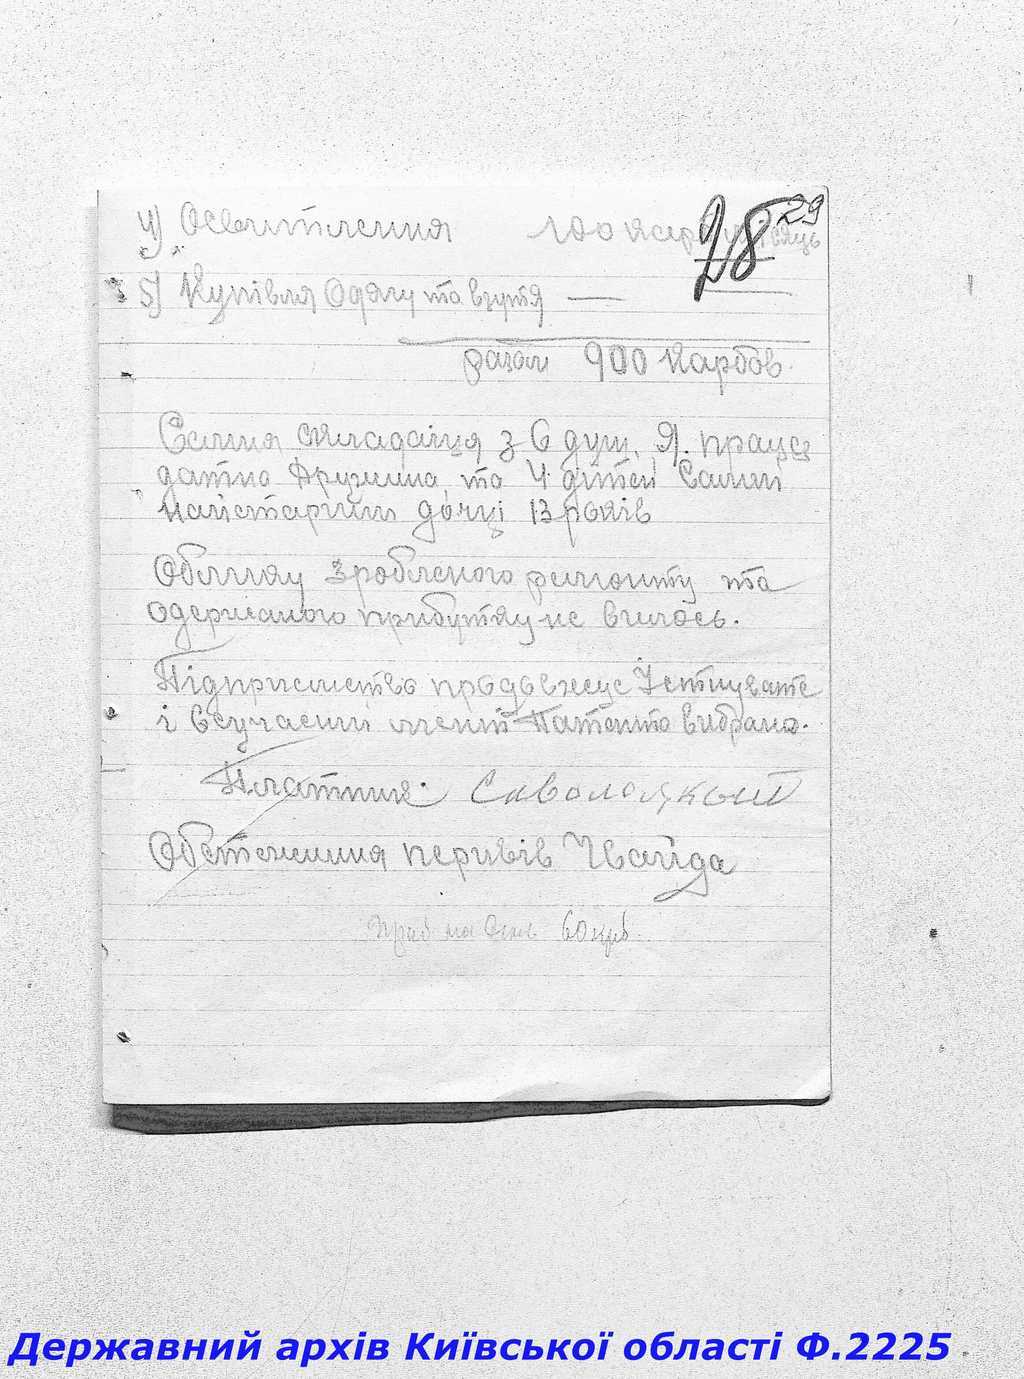 29
28
4) Освитлення 100 карб місяць
5) Купівля Одягу та взутя —
разом 900 Карбов.
Семия складаіця з 6 душ, Я. працє
датна Дружина та 4 дітей Самий
найстарший дочці 13 років
Обліку зробленого ремонту та
одержаного прибутку не вилось.
Підприємство продовжує Існувате
і всучасний мент Патента вибрано.
Платник
Обстеження перивів Чвайда
60 крб
Державний архів Київської області Ф.2225